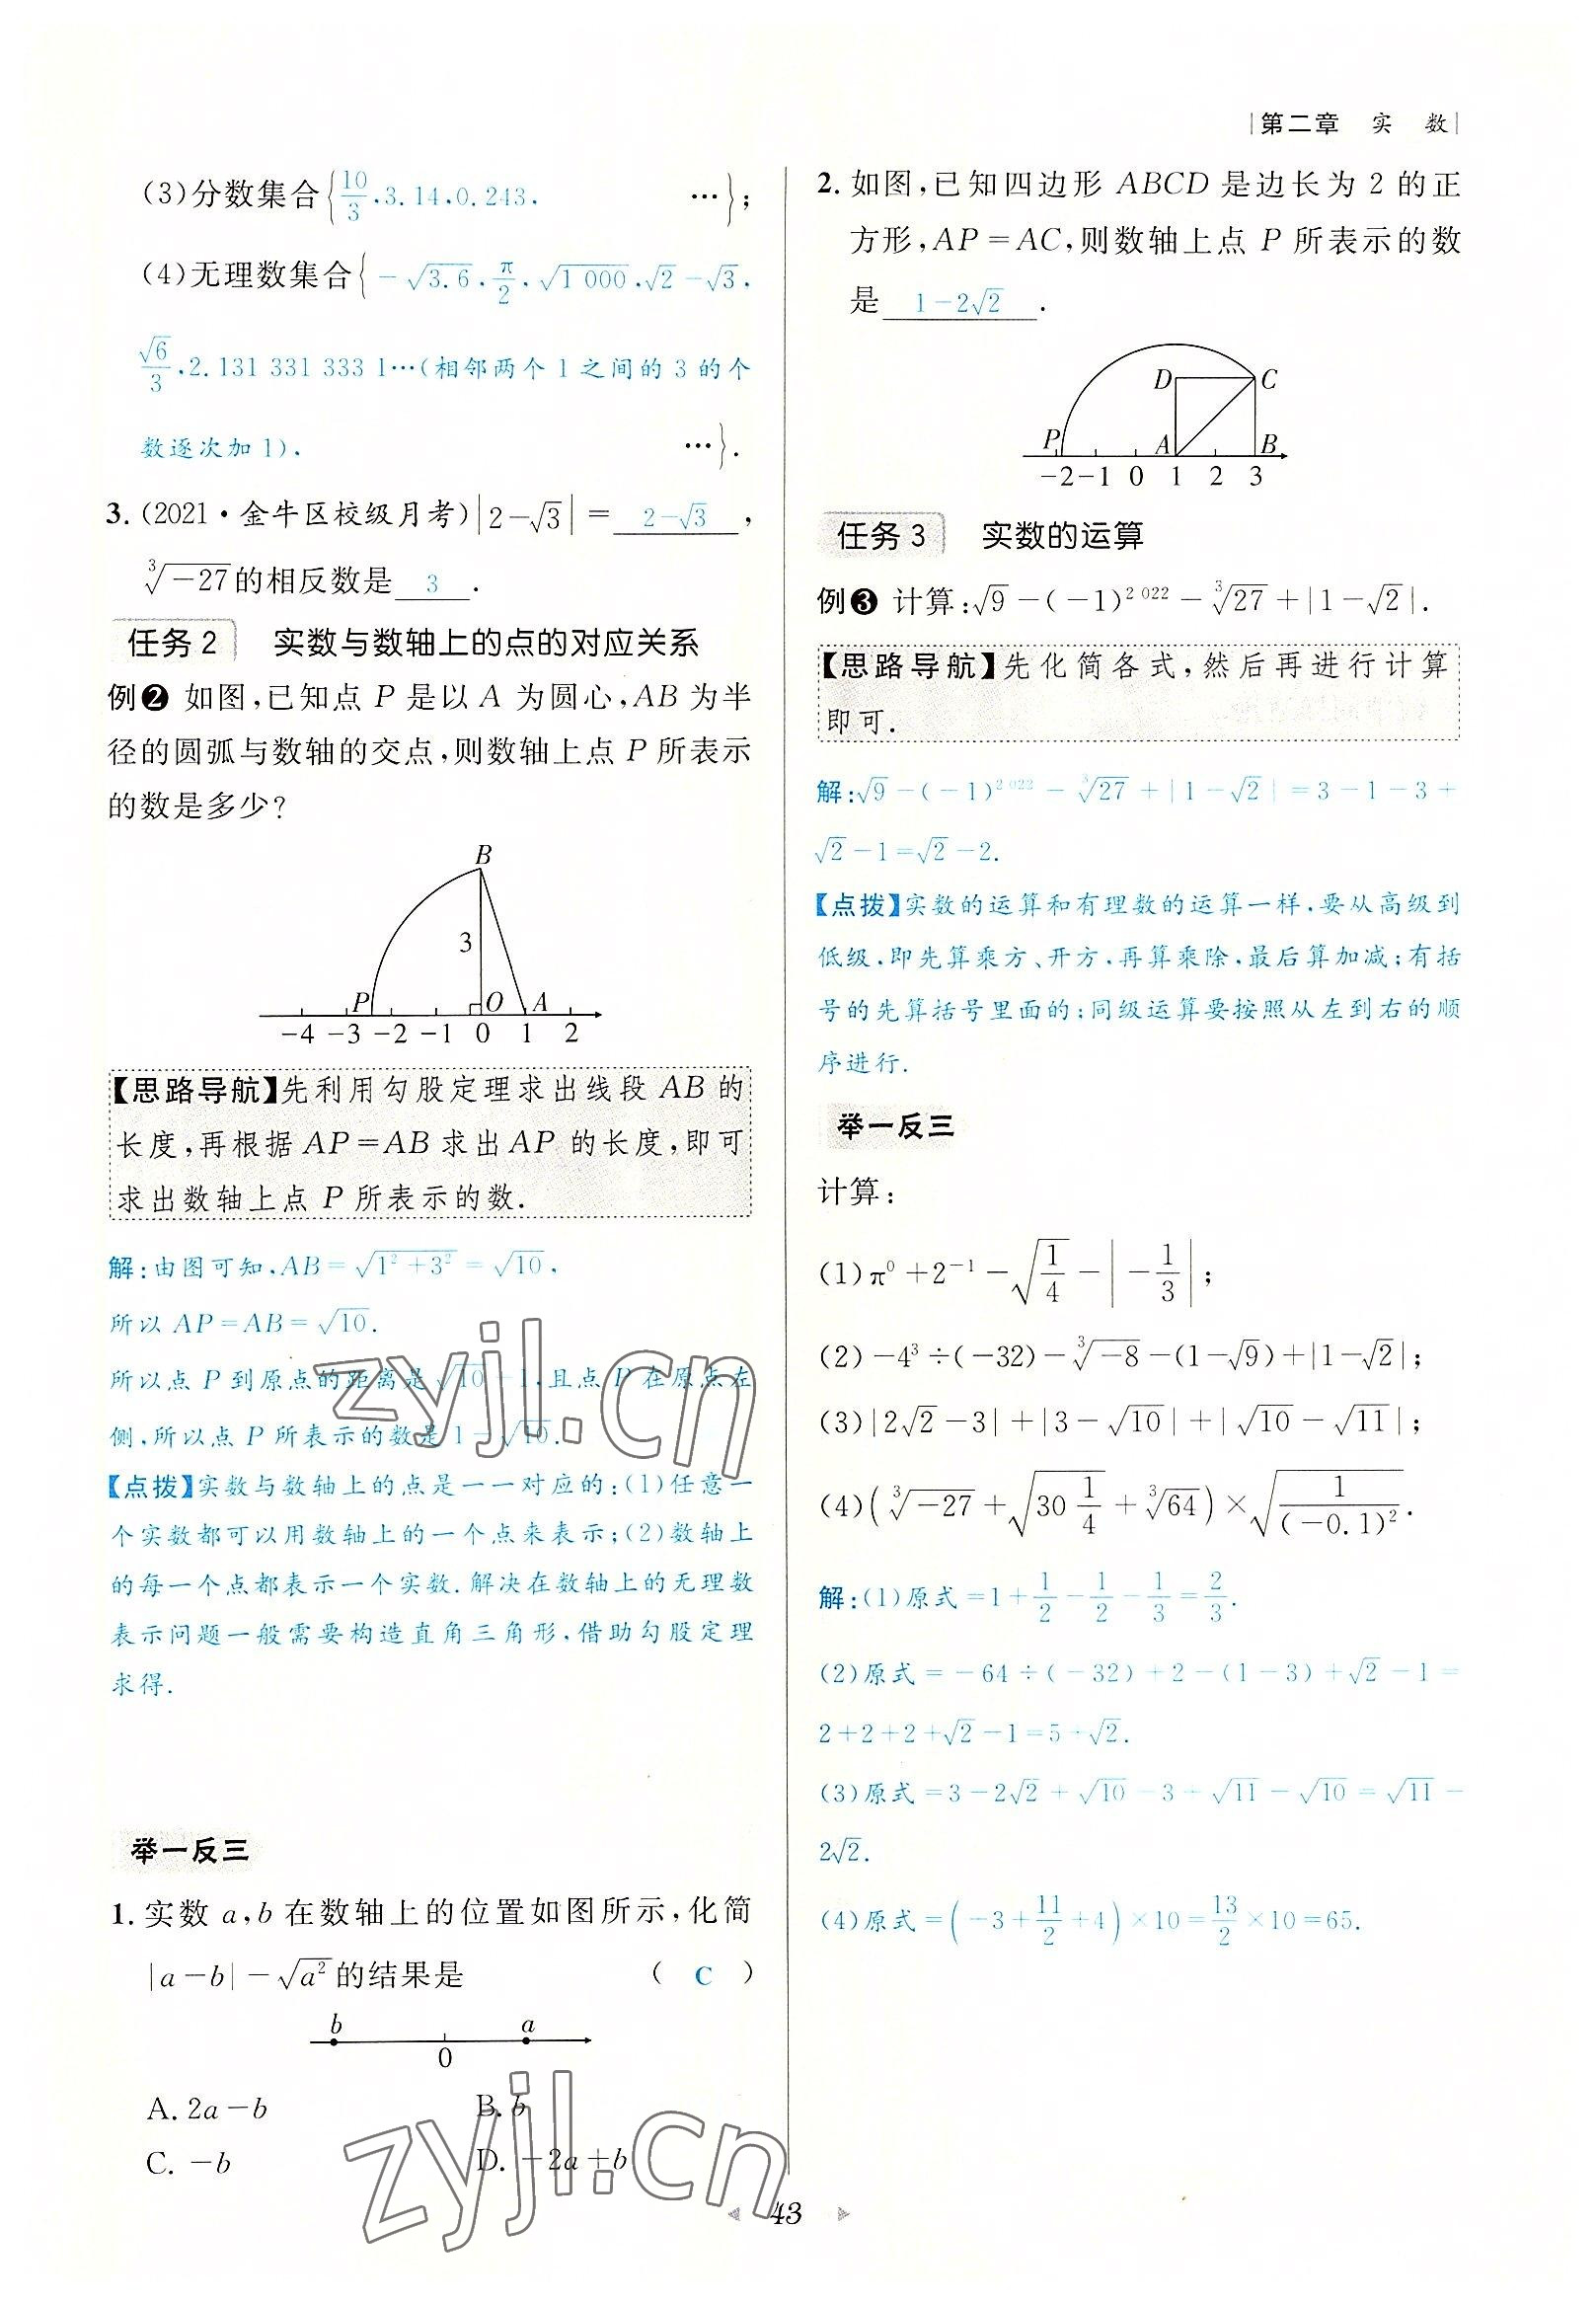 第二章 实 数
(3)分数集合{10/3,3.14,0.243, …};
(4)无理数集合{-√3.6,π/2,√1 000,√2-√3,
√6/3,2.131 331 333 1…(相邻两个1之间的3的个
数逐次加1), …}.
3. (2021·金牛区校级月考)|2-√3|= 2-√3 ,
∛-27的相反数是 3 .
任务2 实数与数轴上的点的对应关系
例❷ 如图,已知点P是以A为圆心,AB为半
径的圆弧与数轴的交点,则数轴上点P所表示
的数是多少?
B
3
P O A
-4 -3 -2 -1 0 1 2
【思路导航】先利用勾股定理求出线段AB的
长度,再根据AP=AB求出AP的长度,即可
求出数轴上点P所表示的数.
解:由图可知,AB=√(1²+3²)=√10,
所以AP=AB=√10.
所以点P到原点的距离是√10-1,且点P在原点左
侧,所以点P所表示的数是1-√10.
【点拨】实数与数轴上的点是一一对应的:(1)任意一
个实数都可以用数轴上的一个点来表示;(2)数轴上
的每一个点都表示一个实数.解决在数轴上的无理数
表示问题一般需要构造直角三角形,借助勾股定理
求得.
举一反三
1. 实数a,b在数轴上的位置如图所示,化简
|a-b|-√a²的结果是 ( C )
b a
0
A. 2a-b B. b
C. -b D. -2a+b
2. 如图,已知四边形ABCD是边长为2的正
方形,AP=AC,则数轴上点P所表示的数
是 1-2√2 .
D C
P A B
-2 -1 0 1 2 3
任务3 实数的运算
例❸ 计算:√9-(-1)²⁰²²-∛27+|1-√2|.
【思路导航】先化简各式,然后再进行计算
即可.
解:√9-(-1)²⁰²²-∛27+|1-√2|=3-1-3+
√2-1=√2-2.
【点拨】实数的运算和有理数的运算一样,要从高级到
低级,即先算乘方、开方,再算乘除,最后算加减;有括
号的先算括号里面的;同级运算要按照从左到右的顺
序进行.
举一反三
计算:
(1)π⁰+2⁻¹-√(1/4)-|-1/3|;
(2)-4³÷(-32)-∛-8-(1-√9)+|1-√2|;
(3)|2√2-3|+|3-√10|+|√10-√11|;
(4)(∛-27+√(30 1/4)+∛64)×√(1/(-0.1)²).
解:(1)原式=1+1/2-1/2-1/3=2/3.
(2)原式=-64÷(-32)+2-(1-3)+√2-1=
2+2+2+√2-1=5+√2.
(3)原式=3-2√2+√10-3+√11-√10=√11-
2√2.
(4)原式=(-3+11/2+4)×10=13/2×10=65.
43
zyjl.cn
zyjl.cn